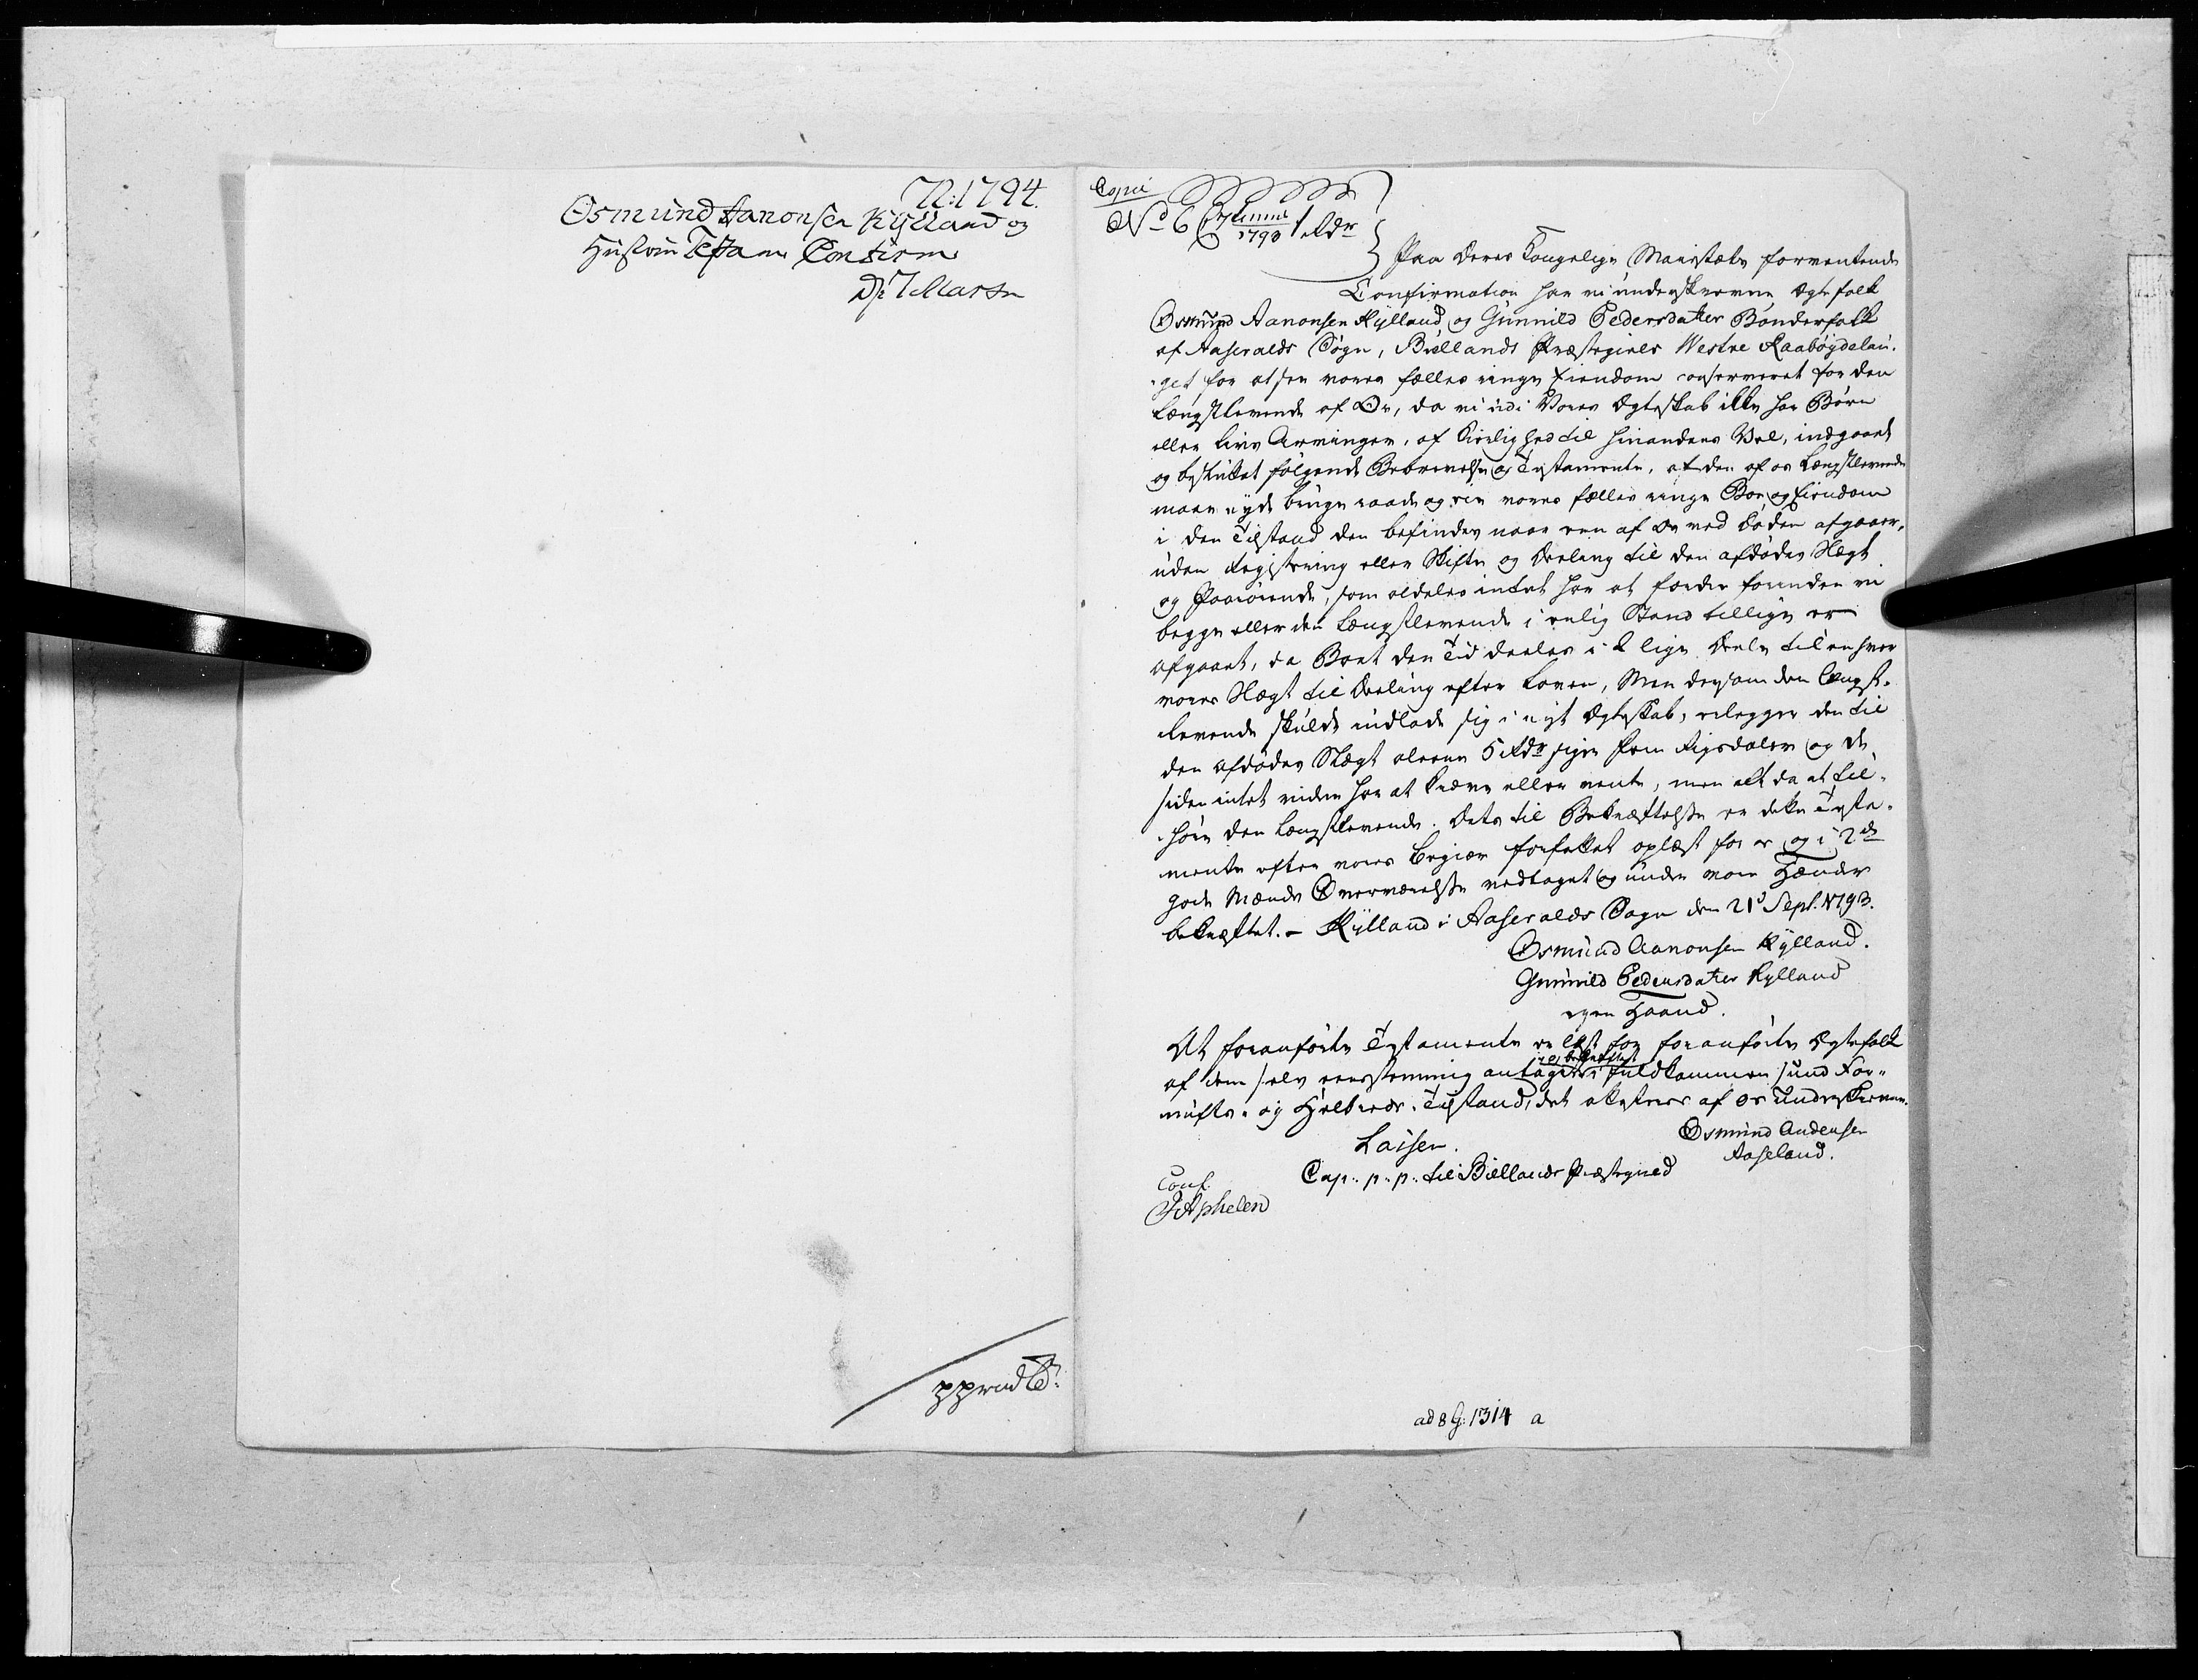 N: 1794.
Osmund Aanonsen Kylland og
Hustrue Testam: Confirm:
D: 7 Marts
pprend
Copie
No 6 1793 1 Rdr
Paa Deres Kongelige Maiestæts forventende
Confirmation har vi underskrevne Ægtefolk
Osmund Aanonsen Kylland og Gunnild Pedersdatter Bønderfolk
af Aaseralds Sogn, Biellands Præstegields Westre Raabøgdelau-
get, for at see vores fælles ringe Eiendom conserveret for den
Længstlevende af Os, da vi udi Vores Ægteskab ikke har Børn
eller Livs Arvinger, af Kierlighed til hinandens Vel, indgaaet
og besluttet følgende Beskrivelse og Testamente, at den af os Længstlevende
maae nyde bruge raade og eie vores fælles ringe Boe og Eiendom
i den Tilstand den befindes naar een af Os ved Døden afgaaer,
uden Registering eller Skifte og Deeling til den afdødes Slægt
og Paarørende, som aldeles intet har at fordre forinden vi
begge eller den Længstlevende i enlig Stand tillige er
afgaaet, da Boet den Tid deeles i 2 lige Deele til enhver
vores Slægt til Deeling efter Loven, Men dersom den Længst-
levende skulde indlade sig i nyt Ægteskab, erlegger den til
den afdødes Slægt aleene 5 Rdr siger Fem Rigsdaler og de
siden intet videre har at kræve eller vente, men alt da at til-
høre den Længstlevende. Dets til Bekræftelse er dette Testa-
mente efter vores Begiær forfattet oplæst for os og i 2de
gode Mænds Overværelse vedtaget og under vore Hænder
bekræftet. - Kylland i Aaseralds Sogn den 21de Sept. 1793.
Osmund Aanonsen Kylland.
Gunnild Pedersdatter Kylland
egen Haand.
At foranførte Testamente er læst for foranførte Ægtefolk
og bekræftet
af dem selv eenstemmig antaget i fuldkommen sund For-
nufts- og Helbreds-Tilstand, det attesteres af os Underskrevne.
Laisen.
Osmund Andensen
Aaseland.
Cap: p: p: til Biellands Præstegield
Conf.
J Aphelen
ad 8 G: 1314 a